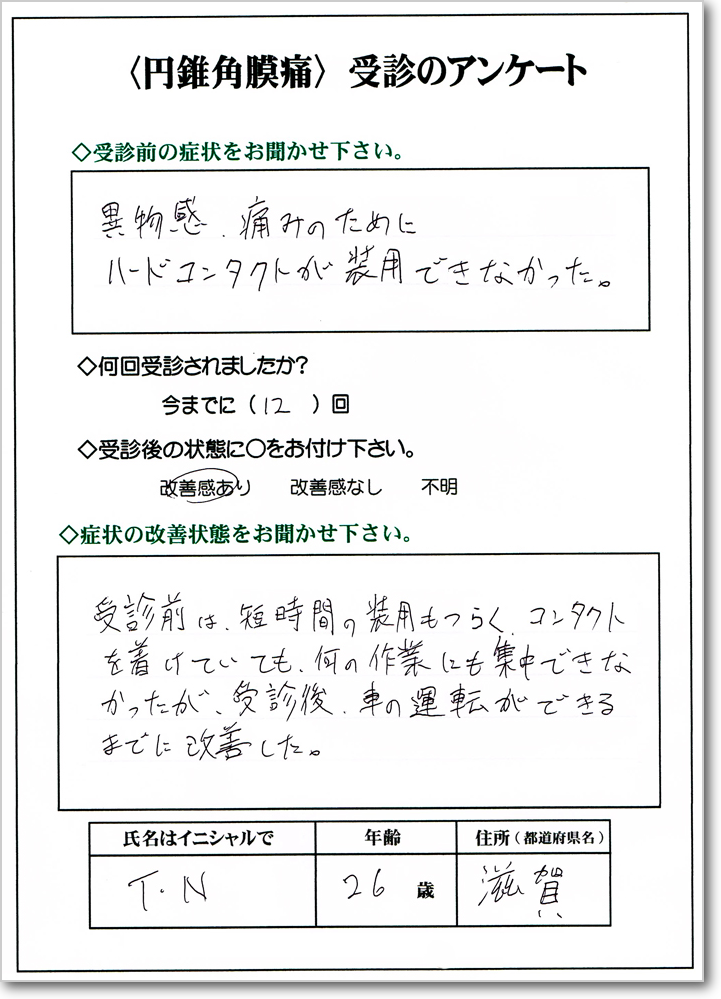 〈円錐角膜痛〉受診のアンケート
◇受診前の症状をお聞かせ下さい。
異物感、痛みのために
ハードコンタクトが装用できなかった。
◇何回受診されましたか?
今までに(12)回
◇受診後の状態に〇をお付け下さい。
改善感あり 改善感なし 不明
◇症状の改善状態をお聞かせ下さい。
受診前は、短時間の装用もつらく、コンタクト
を着けていても、何の作業にも集中できな
かったが、受診後、車の運転ができる
までに改善した。
氏名はイニシャルで 年齢 住所(都道府県名)
T・N 26歳 滋賀